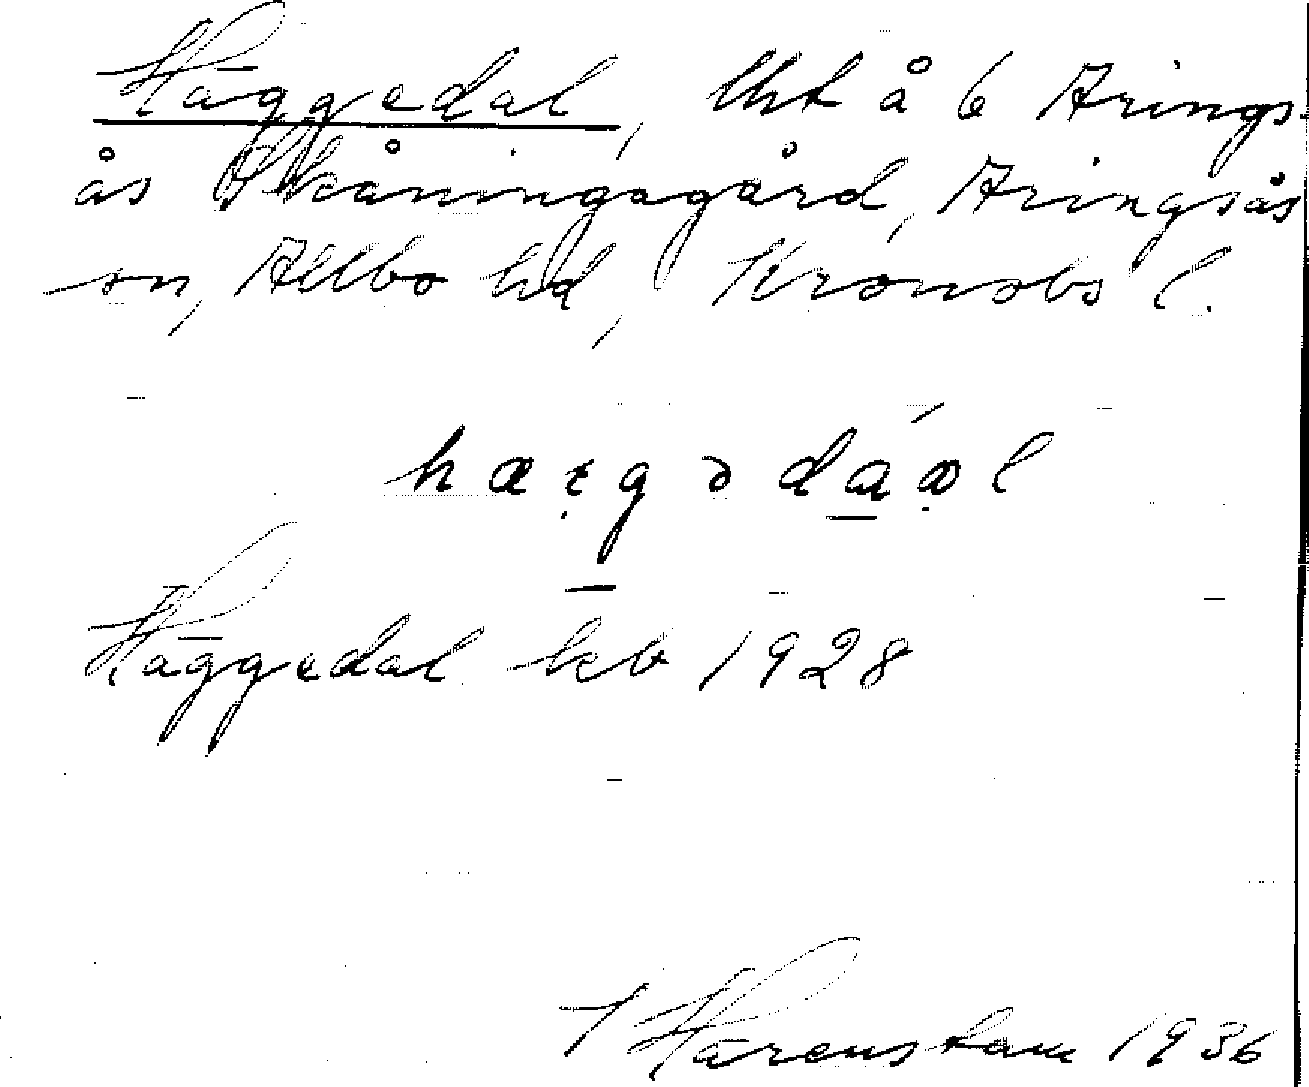 Häggedal, lht å 6 Arings-
ås Skåningagård, Aringsås
sn, Allbo hd, Kronobs l.
Häggedal kb 1928
Härenstam 1936